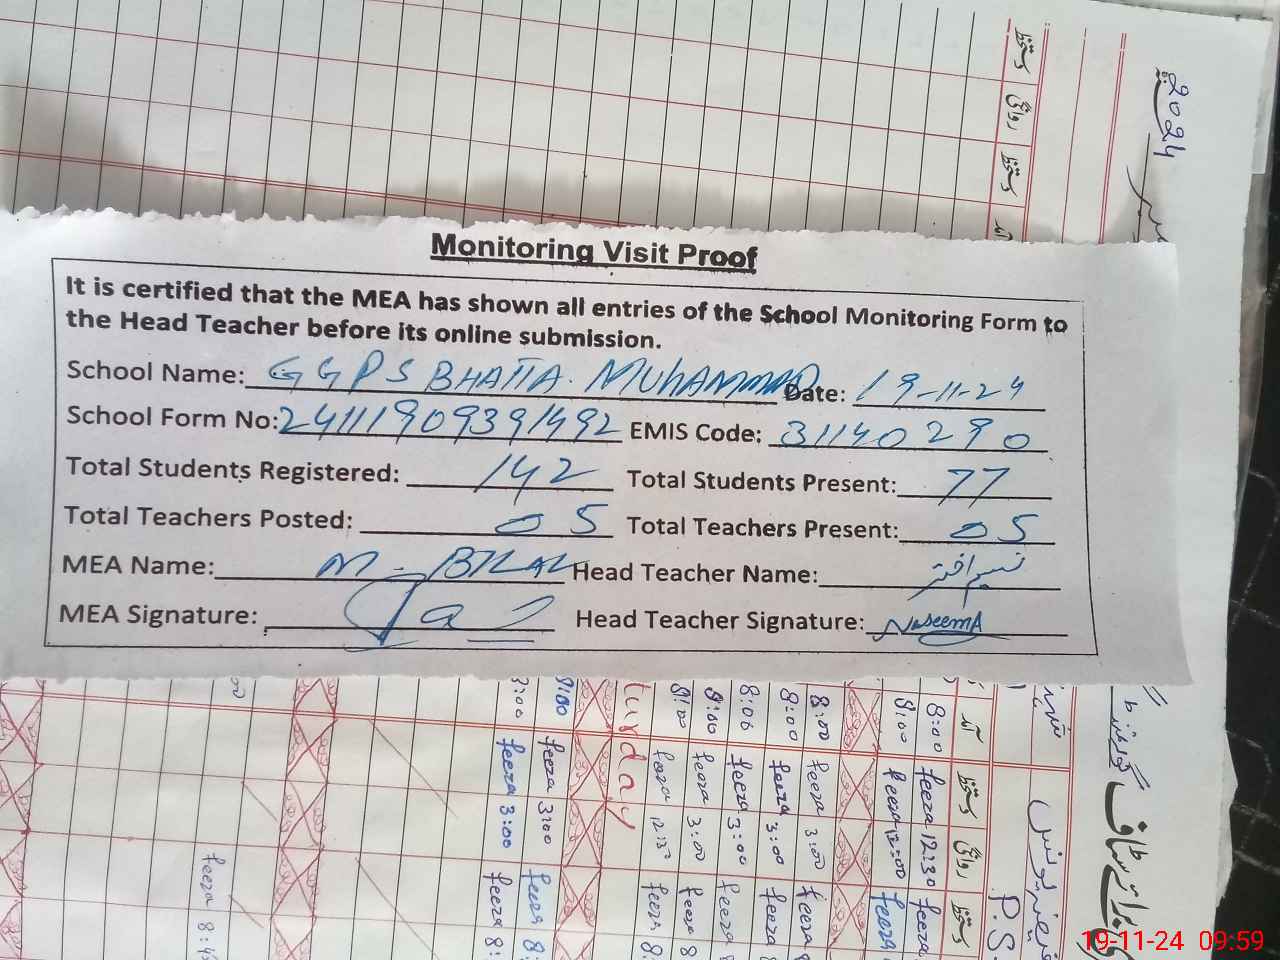 Monitoring Visit Proof
It is certified that the MEA has shown all entries of the School Monitoring Form to
the Head Teacher before its online submission.
School Name: GGPS BHATTA. MUHAMMAD Date: 19-11-24
School Form No: 24111909391492 EMIS Code: 31140290
Total Students Registered: 142 Total Students Present: 77
Total Teachers Posted: 05 Total Teachers Present: 05
MEA Name: M. BILAL Head Teacher Name: نسیم اختر
MEA Signature: Head Teacher Signature: NaseemA
2024
دستخط
روانگی
دستخط
آمد
آمد
دستخط
روانگی
دستخط
P.S
8:00 feeza 12:30 feeza
8:00 feeza 12:00 feeza
8:00 feeza 3:00 feeza
8:00 feeza 3:00 feeza
8:00 feeza 3:00 feeza
8:00 feeza 3:00 feeza 8
8:00 feeza 12:30 feeza 8:
8:00 feeza 3:00 feeza 8:
3:00 feeza 3:00 feeza 8:
feeza 8:4
19-11-24 09:59